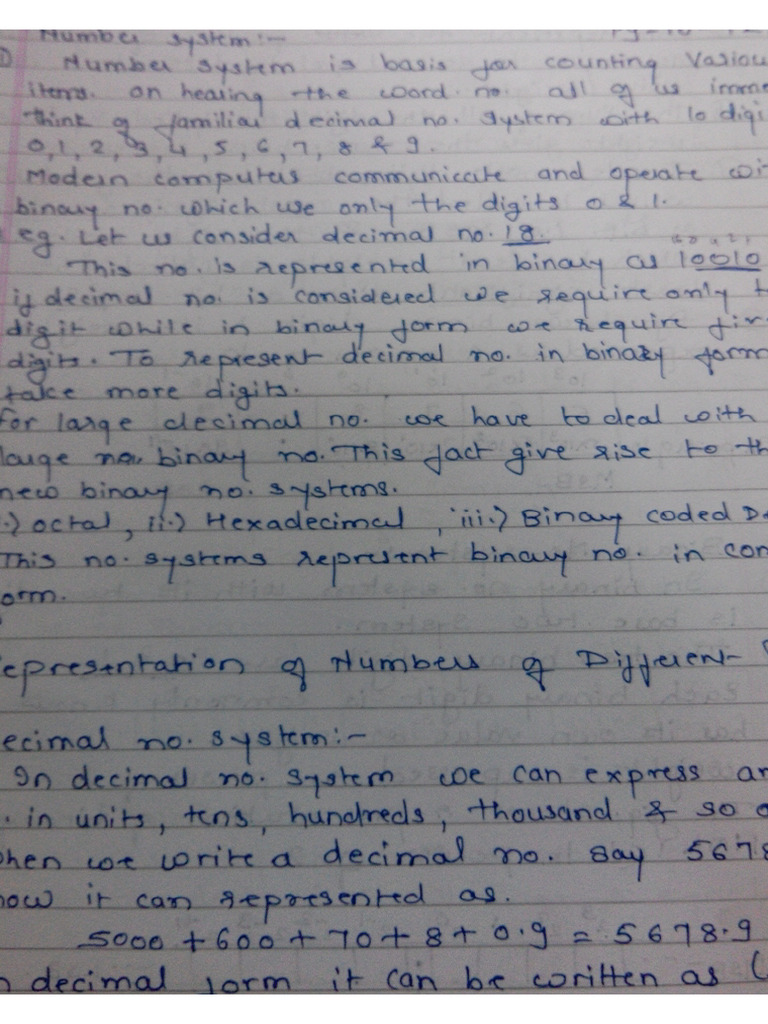 Number system:-
Number system is basis for counting Variou
items. On hearing the word no. all of us imme
think of familiar decimal no. system with 10 digi
0,1,2,3,4,5,6,7,8 & 9.
Modern computers communicate and operate wi
binary no. which use only the digits 0 & 1.
eg. Let us consider decimal no. 18.
This no. is represented in binary as 10010
if decimal no. is considered we require only t
digit while in binary form we require fiv
digits. To represent decimal no. in binary form
take more digits.
for large decimal no. we have to deal with
large binary no. This fact give rise to th
new binary no. systems.
.) octal, ii.) Hexadecimal, iii.) Binary coded De
This no. systems represent binary no. in con
orm.
epresentation of Numbers of Different-
ecimal no. system:-
In decimal no. system we can express an
. in units, tens, hundreds, thousand & so o
hen we write a decimal no. say 5678
now it can represented as.
5000 + 600 + 70 + 8 + 0.9 = 5678.9
n decimal form it can be written as (